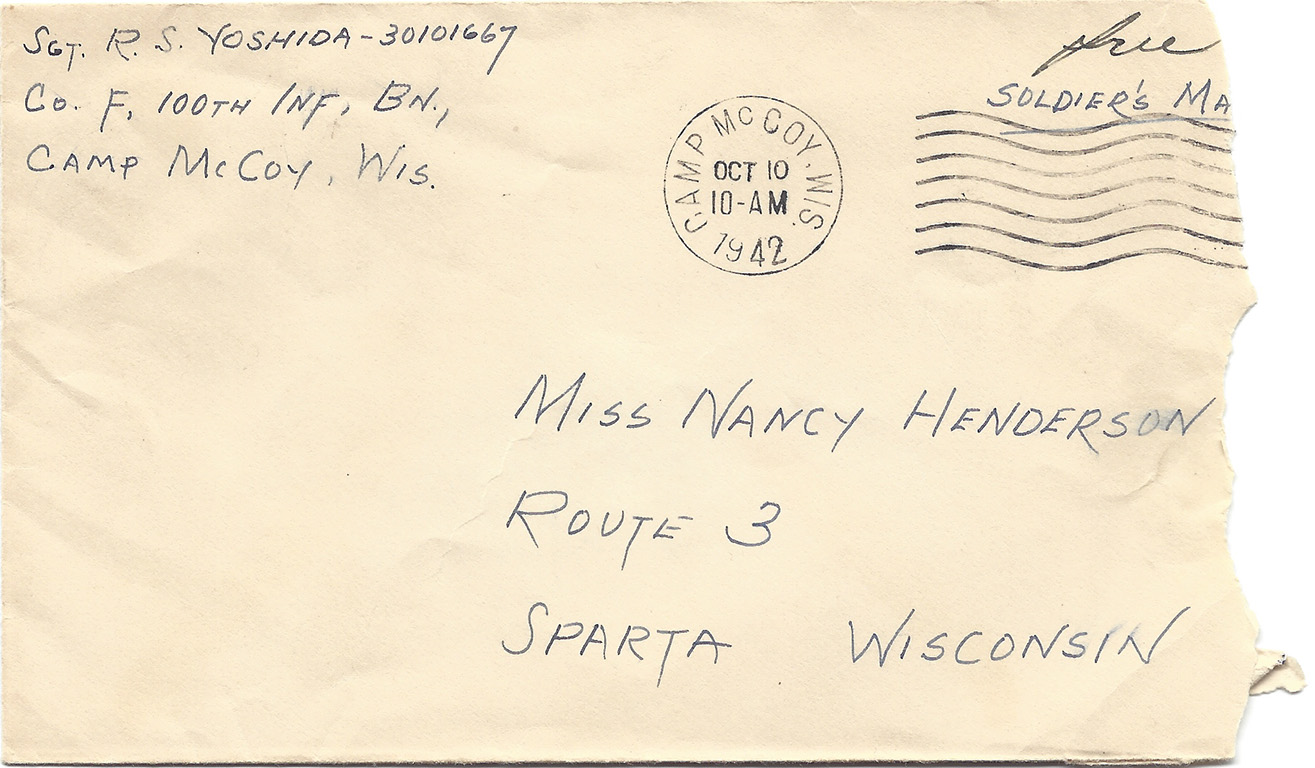 Sgt. R. S. Yoshida - 30101667
Co. F, 100th Inf, Bn.,
Camp McCoy, Wis.
free
Soldier's Ma
CAMP McCOY, WIS.
OCT 10
10-AM
1942
Miss Nancy Henderson
Route 3
Sparta Wisconsin